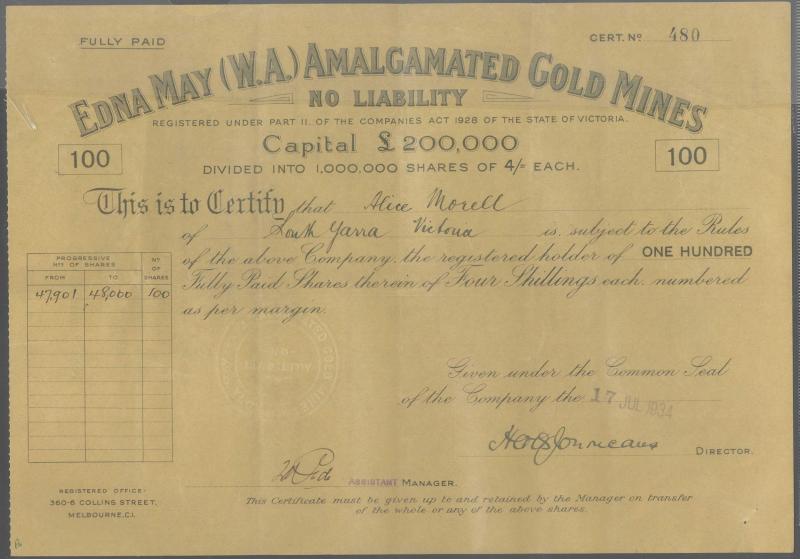 FULLY PAID
CERT. Nº 480
EDNA MAY (W.A.) AMALGAMATED GOLD MINES
NO LIABILITY
REGISTERED UNDER PART II. OF THE COMPANIES ACT 1928 OF THE STATE OF VICTORIA.
Capital £200,000
100
100
DIVIDED INTO 1,000,000 SHARES OF 4/= EACH.
This is to Certify that Alice Morell
of South Yarra Victoria is, subject to the Rules
of the above Company, the registered holder of ONE HUNDRED
Fully Paid Shares therein of Four Shillings each, numbered
as per margin.
PROGRESSIVE
Nos OF SHARES
Nº
OF
SHARES
FROM
TO
47,901 48,000 100
Given under the Common Seal
of the Company the 17 JUL 1934
DIRECTOR.
ASSISTANT MANAGER.
REGISTERED OFFICE:
360-6 COLLINS STREET,
MELBOURNE, C.1.
This Certificate must be given up to and retained by the Manager on transfer
of the whole or any of the above shares.